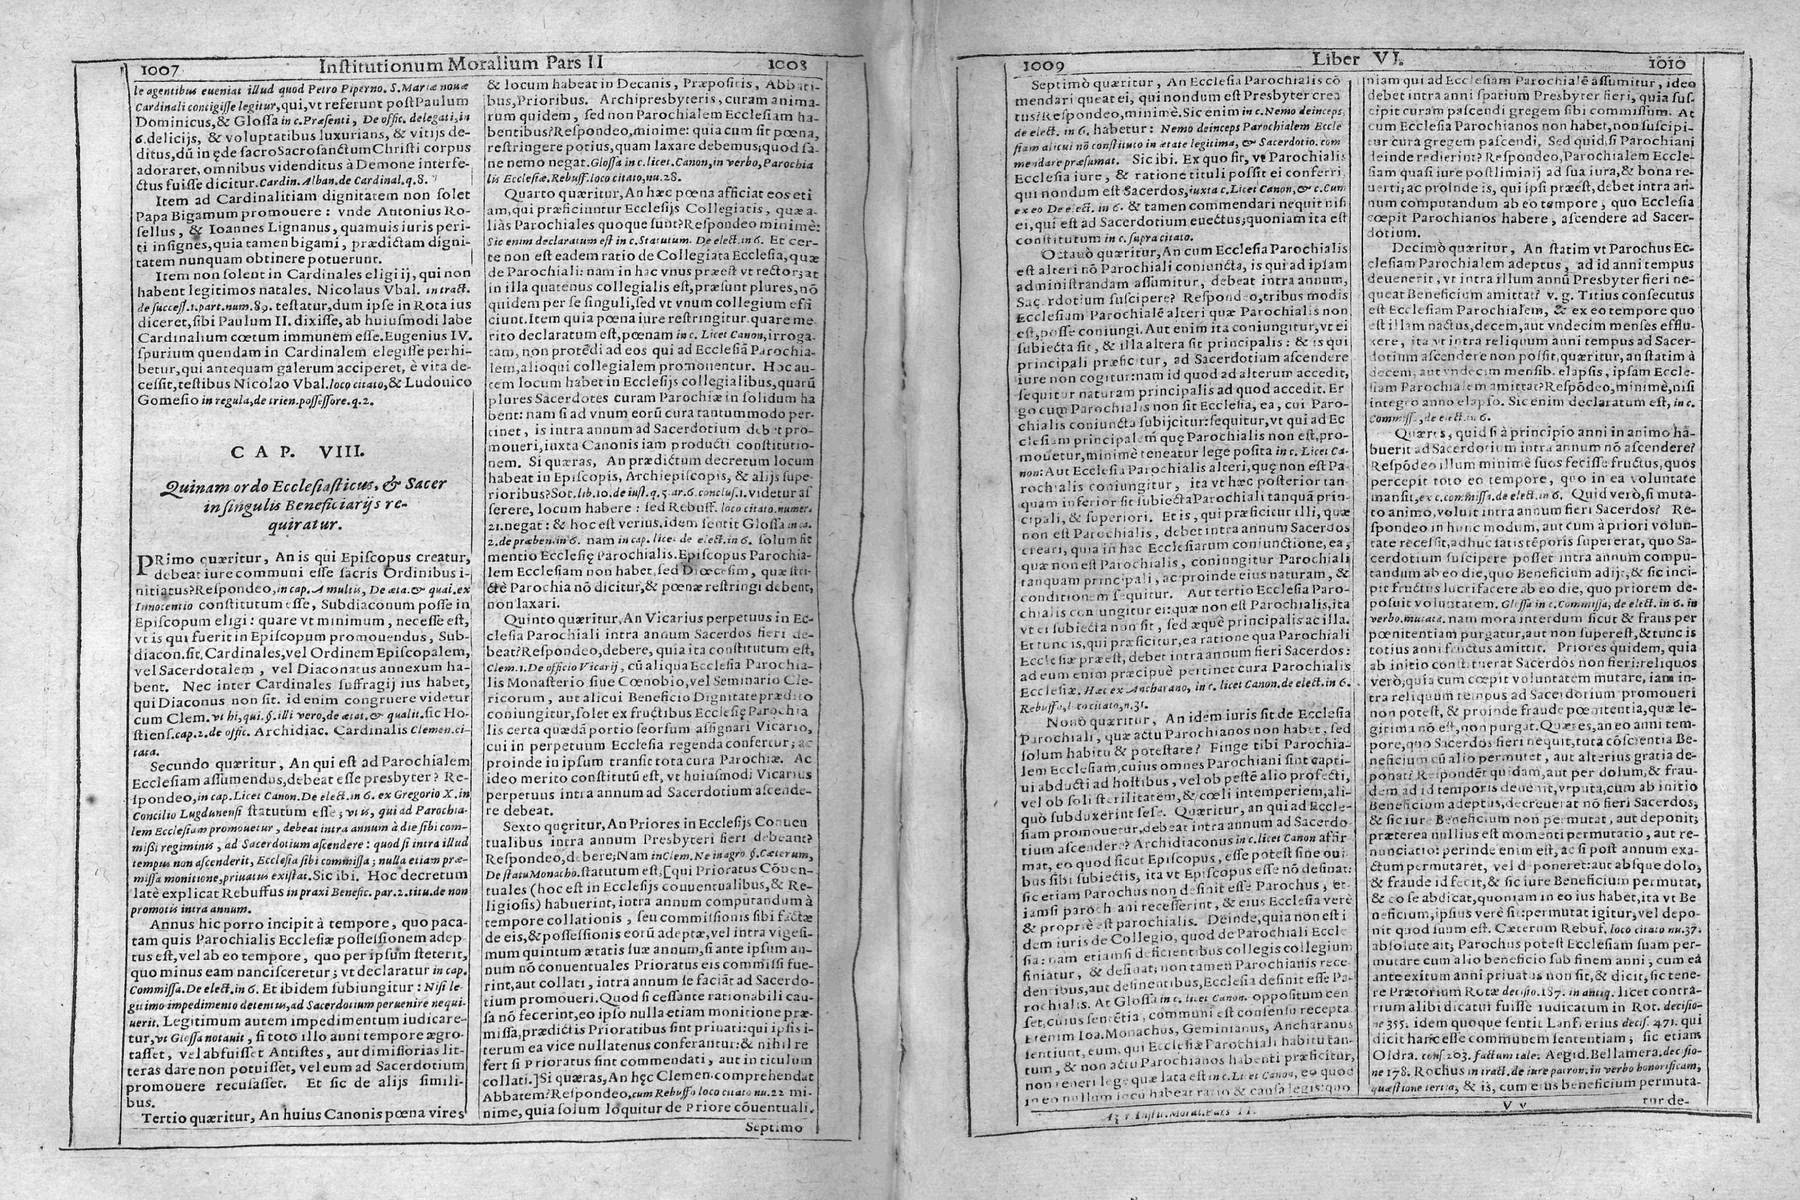 1007
Institutionum Moralium Pars II
1008
le agentibus eueniat illud quod Petro Piperno. S. Mariæ nouæ
Cardinali contigisse legitur, qui, vt referunt post Paulum
Dominicus, & Glossa in c. Præsenti, De offic. delegati, in
6. delicijs, & voluptatibus luxurians, & vitijs de-
ditus, dũ in ęde sacro Sacrosanctum Christi corpus
adoraret, omnibus videnditus à Demone interfe-
ctus fuisse dicitur. Cardin. Alban. de Cardinal. q. 8.
Item ad Cardinalitiam dignitatem non solet
Papa Bigamum promouere: vnde Antonius Ro-
sellus, & Ioannes Lignanus, quamuis iuris peri-
ti insignes, quia tamen bigami, prædictam digni-
tatem nunquam obtinere potuerunt.
Item non solent in Cardinales eligi ij, qui non
habent legitimos natales. Nicolaus Vbal. in tract.
de success. 1. part. num. 89. testatur, dum ipse in Rota ius
diceret, sibi Paulum II. dixisse, ab huiusmodi labe
Cardinalium cœtum immunem esse. Eugenius IV.
spurium quendam in Cardinalem elegisse perhi-
betur, qui antequam galerum acciperet, è vita de-
cessit, testibus Nicolao Vbal. loco citato, & Ludouico
Gomesio in regula, de trien. possessore. q. 2.
CAP. VIII.
Quinam ordo Ecclesiasticus, & Sacer
in singulis Beneficiarijs re-
quiratur.
PRimo quæritur, An is qui Episcopus creatur,
debeat iure communi esse sacris Ordinibus i-
nitiatus? Respondeo, in cap. A multis, De æta. & quai. ex
Innocentio constitutum esse, Subdiaconum posse in
Episcopum eligi: quare vt minimum, necesse est,
vt is qui fuerit in Episcopum promouendus, Sub-
diacon. sit. Cardinales, vel Ordinem Episcopalem,
vel Sacerdotalem, vel Diaconatus annexum ha-
bent. Nec inter Cardinales suffragij ius habet,
qui Diaconus non sit. id enim congruere videtur
cum Clem. vt hi, qui. §. illi vero, de ætat. & qualit. sic Ho-
stiens. cap. 2. de offic. Archidiac. Cardinalis Clemen. ci-
tata.
Secundo quæritur, An qui est ad Parochialem
Ecclesiam assumendus, debeat esse presbyter? Re-
spondeo, in cap. Licet Canon. De elect. in 6. ex Gregorio X. in
Concilio Lugdunensi statutum esse; vt is, qui ad Parochia-
lem Ecclesiam promouetur, debeat intra annum à die sibi com-
missi regiminis, ad Sacerdotium ascendere: quod si intra illud
tempus non ascenderit, Ecclesia sibi commissa; nulla etiam præ-
missa monitione, priuatus existat. Sic ibi. Hoc decretum
latè explicat Rebuffus in praxi Benefic. par. 2. titu. de non
promotis intra annum.
Annus hic porro incipit à tempore, quo paca-
tam quis Parochialis Ecclesiæ possessionem adep
tus est, vel ab eo tempore, quo per ipsum steterit,
quo minus eam nancisceretur; vt declaratur in cap.
Commissa. De elect. in 6. Et ibidem subiungitur: Nisi le-
gitimo impedimento detentus, ad Sacerdotium peruenire nequi-
uerit. Legitimum autem impedimentum iudicare-
tur, vt Glossa notauit, si toto illo anni tempore ægro-
tasset, vel abfuisset Antistes, aut dimissorias lit-
teras dare non potuisset, vel eum ad Sacerdotium
promouere recusasset. Et sic de alijs simili-
bus.
Tertio quæritur, An huius Canonis pœna vires
& locum habeat in Decanis, Præpositis, Abbati-
bus, Prioribus. Archipresbyteris, curam anima-
rum quidem, sed non Parochialem Ecclesiam ha-
bentibus? Respondeo, minime: quia cum sit pœna,
restringere potius, quam laxare debemus; quod sa-
ne nemo negat. Glossa in c. licet. Canon, in verbo, Parochia
lis Ecclesiæ. Rebuff. loco citato, nu. 28.
Quarto quæritur, An hæc pœna afficiat eos eti
am, qui præficiuntur Ecclesijs Collegiatis, quæ a-
liàs Parochiales quoque sunt? Respondeo minimè:
Sic enim declaratum est in c. Statutum. De elect. in 6. Et cer-
te non est eadem ratio de Collegiata Ecclesia, quæ
de Parochiali: nam in hac vnus præest vt rector; at
in illa quatenus collegialis est, præsunt plures, nõ
quidem per se singuli, sed vt vnum collegium effi
ciunt. Item quia pœna iure restringitur. quare me-
rito declaratum est, pœnam in c. Licet Canon, irroga-
tam, non protēdi ad eos qui ad Ecclesiã Parochia-
lem, alioqui collegialem promouentur. Hoc au-
tem locum habet in Ecclesijs collegialibus, quarũ
plures Sacerdotes curam Parochiæ in solidum ha
bent: nam si ad vnum eorũ cura tantummodo per-
tinet, is intra annum ad Sacerdotium debet pro-
moueri, iuxta Canonis iam producti constitutio-
nem. Si quæras, An prædictum decretum locum
habeat in Episcopis, Archiepiscopis, & alijs supe-
rioribus? Sot. lib. 10. de iust. q. 5. ar. 6. conclus. 1. videtur as
serere, locum habere: sed Rebuff. loco citato. numer.
21. negat: & hoc est verius. idem sentit Glossa in ca.
2. de præben. in 6. nam in cap. licet. de elect. in 6. solum fit
mentio Ecclesię Parochialis. Episcopus Parochia-
lem Ecclesiam non habet, sed Diœcesim, quæ stri-
ctè Parochia nõ dicitur, & pœnæ restringi debent,
non laxari.
Quinto quæritur, An Vicarius perpetuus in Ec-
clesia Parochiali intra annum Sacerdos fieri de-
beat? Respondeo, debere, quia ita constitutum est,
Clem. 1. De officio Vicarij, cũ aliqua Ecclesia Parochia-
lis Monasterio siue Cœnobio, vel Seminario Cle-
ricorum, aut alicui Beneficio Dignitate prædito
coniungitur, solet ex fructibus Ecclesię Parochia
lis certa quædã portio seorsum assignari Vicario,
cui in perpetuum Ecclesia regenda confertur; ac
proinde in ipsum transit tota cura Parochiæ. Ac
ideo merito constitutũ est, vt huiusmodi Vicarius
perpetuus intra annum ad Sacerdotium ascende-
re debeat.
Sexto quęritur, An Priores in Ecclesijs Conuen
tualibus intra annum Presbyteri fieri debeant?
Respondeo, debere; Nam in Clem. Ne in agro §. Cæterum,
De statu Monacho. statutum est, [qui Prioratus Cõuen-
tuales (hoc est in Ecclesijs couuentualibus, & Re-
ligiosis) habuerint, intra annum computandum à
tempore collationis, seu commissionis sibi factæ
de eis, & possessionis eorũ adeptæ, vel intra vigesi-
mum quintum ætatis suæ annum, si ante ipsum an-
num nõ couentuales Prioratus eis commissi fue-
rint, aut collati, intra annum se faciãt ad Sacerdo-
tium promoueri. Quod si cessante rationabili cau-
sa nõ fecerint, eo ipso nulla etiam monitione præ-
missa, prædictis Prioratibus sint priuati: qui ipsis i-
terum ea vice nullatenus conferantur: & nihil re
fert si Prioratus sint commendati, aut in titulum
collati.] Si quæras, An hęc Clemen. comprehendat
Abbatem? Respondeo, cum Rebuffo loco citato nu. 22 mi-
nime, quia solum loquitur de Priore cõuentuali.
Septimo
1009
Liber VI.
1010
Septimo quæritur, An Ecclesia Parochialis cõ
mendari queat ei, qui nondum est Presbyter crea
tus? Respondeo, minimè. Sic enim in c. Nemo deinceps,
de elect. in 6. habetur: Nemo deinceps Parochialem Eccle
siam alicui nõ constituto in ætate legitima, & Sacerdotio. com
mendare præsumat. Sic ibi. Ex quo fit, vt Parochialis
Ecclesia iure, & ratione tituli possit ei conferri,
qui nondum est Sacerdos, iuxta c. Licet Canon, & c. Cum
ex eo De elect. in 6. & tamen commendari nequit nisi
ei, qui est ad Sacerdotium euectus; quoniam ita est
constitutum in c. supra citato.
Octauò quæritur, An cum Ecclesia Parochialis
est alteri nõ Parochiali coniuncta, is qui ad ipsam
administrandam assumitur, debeat intra annum,
Sacerdotium suscipere? Respondeo, tribus modis
Ecclesiam Parochialē alteri quæ Parochialis non
est, posse coniungi. Aut enim ita coniungitur, vt ei
subiecta sit, & illa altera sit principalis: & is qui
principali præficitur, ad Sacerdotium ascendere
iure non cogitur: nam id quod ad alterum accedit,
sequitur naturam principalis ad quod accedit. Er
go cum Parochialis non sit Ecclesia, ea, cui Paro-
chialis coniuncta subijcitur: sequitur, vt qui ad Ec
clesiam principalem quę Parochialis non est, pro-
mouetur, minimè teneatur lege posita in c. Licet Ca-
non: Aut Ecclesia Parochialis alteri, quę non est Pa-
rochialis coniungitur, ita vt hæc posterior tan-
quam inferior sit subiecta Parochiali tanquã prin-
cipali, & superiori. Et is, qui præficitur illi, quæ
non est Parochialis, debet intra annum Sacerdos
creari, quia in hac Ecclesiarum coniunctione, ea,
quæ non est Parochialis, coniungitur Parochiali
tanquam principali, ac proinde eius naturam, &
conditionem sequitur. Aut tertio Ecclesia Paro-
chialis coniungitur ei: quæ non est Parochialis, ita
vt ei subiecta non sit, sed æquè principalis ac illa.
Et tunc is, qui præficitur, ea ratione qua Parochiali
Ecclesiæ præest, debet intra annum fieri Sacerdos:
ad eum enim præcipuè pertinet cura Parochialis
Ecclesiæ. Hæc ex Ancharano, in c. licet Canon. de elect. in 6.
Rebuffo, loco citato, n. 31.
Nonò quæritur, An idem iuris sit de Ecclesia
Parochiali, quæ actu Parochianos non habet, sed
solum habitu & potestate? Finge tibi Parochia-
lem Ecclesiam, cuius omnes Parochiani sint capti-
ui abducti ad hostibus, vel ob pestē alio profecti,
vel ob soli sterilitatem, & cœli intemperiem, ali-
quò subduxerint sese. Quæritur, an qui ad Eccle-
siam promouetur, debeat intra annum ad Sacerdo
tium ascendere? Archidiaconus in c. licet Canon affir
mat, eo quod sicut Episcopus, esse potest sine oui
bus sibi subiectis, ita vt Episcopus esse nõ definat:
sic etiam Parochus non desinit esse Parochus, et-
iamsi parochiani recesserint, & eius Ecclesia verè
& propriè est parochialis. Deinde, quia non est i
dem iuris de Collegio, quod de Parochiali Eccle
sia: nam etiamsi deficientibus collegis collegium
finiatur, & desinat; non tamen Parochianis rece-
dentibus, aut desinentibus, Ecclesia desinit esse Pa-
rochialis. At Glossa in c. licet Canon. oppositum cen
set, cuius sentētia, communi est consensu recepta
Etenim Ioa. Monachus, Geminianus, Ancharanus
sentiunt, eum, qui Ecclesiæ Parochiali habitu tan-
tum, & non actu Parochianos habenti præficitur,
non teneri lege quæ lata est in c. Licet Canon, eo quod
in eo nullum locũ habeat ratio & causa legis: quo
Azor Instit. Moral. Pars II.
niam qui ad Ecclesiam Parochialē assumitur, ideo
debet intra anni spatium Presbyter fieri, quia sus-
cipit curam pascendi gregem sibi commissum. At
cum Ecclesia Parochianos non habet, non suscipi-
tur cura gregem pascendi. Sed quid, si Parochiani
deinde redierint? Respondeo, Parochialem Eccle-
siam quasi iure postliminij ad sua iura, & bona re-
uerti; ac proinde is, qui ipsi præest, debet intra an-
num computandum ab eo tempore, quo Ecclesia
cœpit Parochianos habere, ascendere ad Sacer-
dotium.
Decimò quæritur, An statim vt Parochus Ec-
clesiam Parochialem adeptus, ad id anni tempus
deuenerit, vt intra illum annũ Presbyter fieri ne-
queat Beneficium amittat? v. g. Titius consecutus
est Ecclesiam Parochialem, & ex eo tempore quo
est illam nactus, decem, aut vndecim menses efflu-
xere, ita vt intra reliquum anni tempus ad Sacer-
dotium ascendere non possit, quæritur, an statim à
decem, aut vndecim mensib. elapsis, ipsam Eccle-
siam Parochialem amittat? Respõdeo, minimè, nisi
integro anno elapso. Sic enim declaratum est, in c.
Commiss., de elect. in 6.
Quæres, quid si à principio anni in animo hã-
buerit ad Sacerdotium intra annum nõ ascendere?
Respõdeo illum minimè suos fecisse fructus, quos
percepit toto eo tempore, quo in ea voluntate
mansit, ex c. commissa. de elect. in 6. Quid verò, si muta-
to animo, voluit intra annum fieri Sacerdos? Re-
spondeo in hunc modum, aut cum à priori volun-
tate recessit, adhuc satis tēporis supererat, quo Sa-
cerdotium suscipere posset intra annum compu-
tandum ab eo die, quo Beneficium adijt, & sic inci-
pit fructus lucrifacere ab eo die, quo priorem de-
posuit voluntatem. Glossa in c. Commissa, de elect. in 6. in
verbo. mutata. nam mora interdum sicut & fraus per
pœnitentiam purgatur, aut non superest, & tunc is
totius anni fructus amittit. Priores quidem, quia
ab initio constituerat Sacerdos non fieri: reliquos
verò, quia cum cœpit voluntatem mutare, iam in-
tra reliquum tempus ad Sacerdotium promoueri
non potest, & proinde fraude pœnitentia, quæ le-
gitima nõ est, non purgat. Quæres, an eo anni tem-
pore, quo Sacerdos fieri nequit, tuta cõscientia Be-
neficium cũ alio permutet, aut alterius gratia de-
ponat? Respondēt quidam, aut per dolum, & frau-
dem ad id temporis deuenit, vt puta, cum ab initio
Beneficium adeptus, decreuerat nõ fieri Sacerdos,
& sic iure Beneficium non permutat, aut deponit;
præterea nullius est momenti permutatio, aut re-
nunciatio: perinde enim est, ac si post annum exa-
ctum permutaret, vel deponeret: aut absque dolo,
& fraude id fecit, & sic iure Beneficium permutat,
& eo se abdicat, quoniam in eo ius habet, ita vt Be
neficium, ipsius verè sit: permutat igitur, vel depo-
nit quod suum est. Cæterum Rebuf. loco citato nu. 37.
absolute ait; Parochus potest Ecclesiam suam per-
mutare cum alio beneficio sub finem anni, cum eâ
ante exitum anni priuatus non sit, & dicit, sic tene-
re Prætorium Rotæ decisio. 187. in antiq. licet contra-
rium alibi dicatur fuisse iudicatum in Rot. decisio-
ne 355. idem quoque sentit Lanferius decis. 471. qui
dicit hanc esse communem sententiam; sic etiam
Oldra. cons. 203. factum tale: Aegid. Bellamera. decisio-
ne 178. Rochus in tract. de iure patron. in verbo honorificum,
quæstione tertia, & is, cum eius beneficium permuta-
V v
tur de-